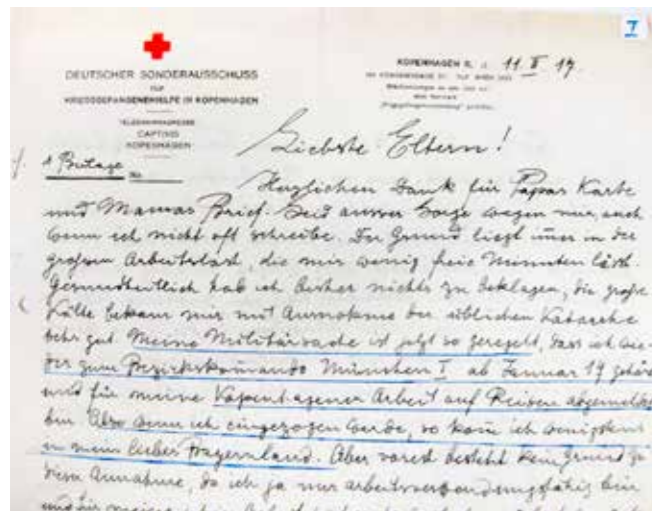 7
DEUTSCHER SONDERAUSSCHUSS
FÜR
KRIEGSGEFANGENENHILFE IN KOPENHAGEN
TELEGRAMMADRESSE
CAPTIVIS
KOPENHAGEN
KOPENHAGEN K. d. 11. II 17.
1 Beilage No.
Liebste Eltern!
Herzlichen Dank für Papas Karte
und Mamas Brief. Seid ausser Sorge wegen mir, auch
wenn ich nicht oft schreibe. Der Grund liegt immer in der
grossen Arbeitslast, die mir wenig freie Minuten lässt.
Gesundheitlich hab ich bisher nichts zu beklagen, die große
Kälte bekam mir mit Ausnahme der üblichen Katarrhe
sehr gut. Meine Militärsache ist jetzt so geregelt, dass ich wie-
der zum Bezirkskomando München I ab Januar 17 gehöre
und für meine Kopenhagener Arbeit auf Reisen abgemeldet
bin. Also wenn ich eingezogen werde, so kom ich wenigstens
in mein liebes Bayernland. Aber vorerst besteht kein Grund zu
dieser Annahme, da ich ja nur arbeitsverwendungsfähig bin
und für meine